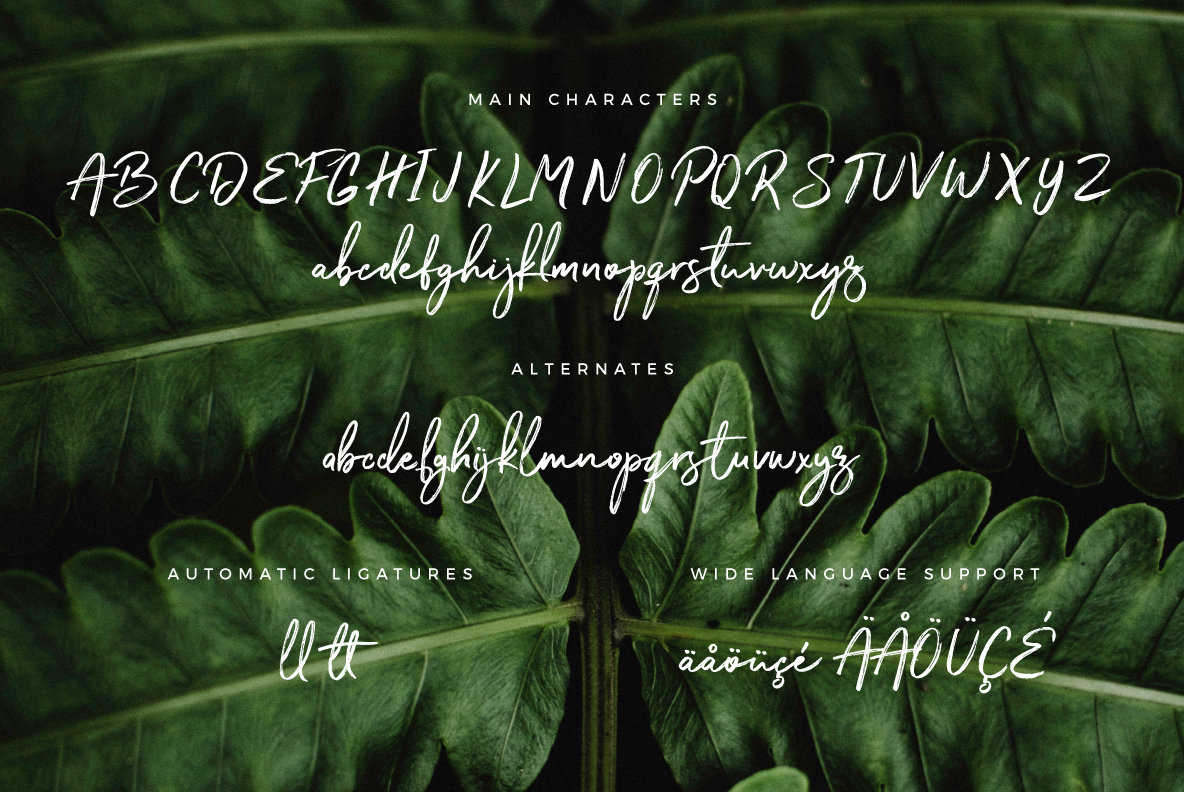 MAIN CHARACTERS
ABCDEFGHIJKLMNOPQRSTUVWXYZ
abcdefghijklmnopqrstuvwxyz
ALTERNATES
abcdefghijklmnopqrstuvwxyz
AUTOMATIC LIGATURES
ll tt
WIDE LANGUAGE SUPPORT
äåöüçé ÄÅÖÜÇÉ